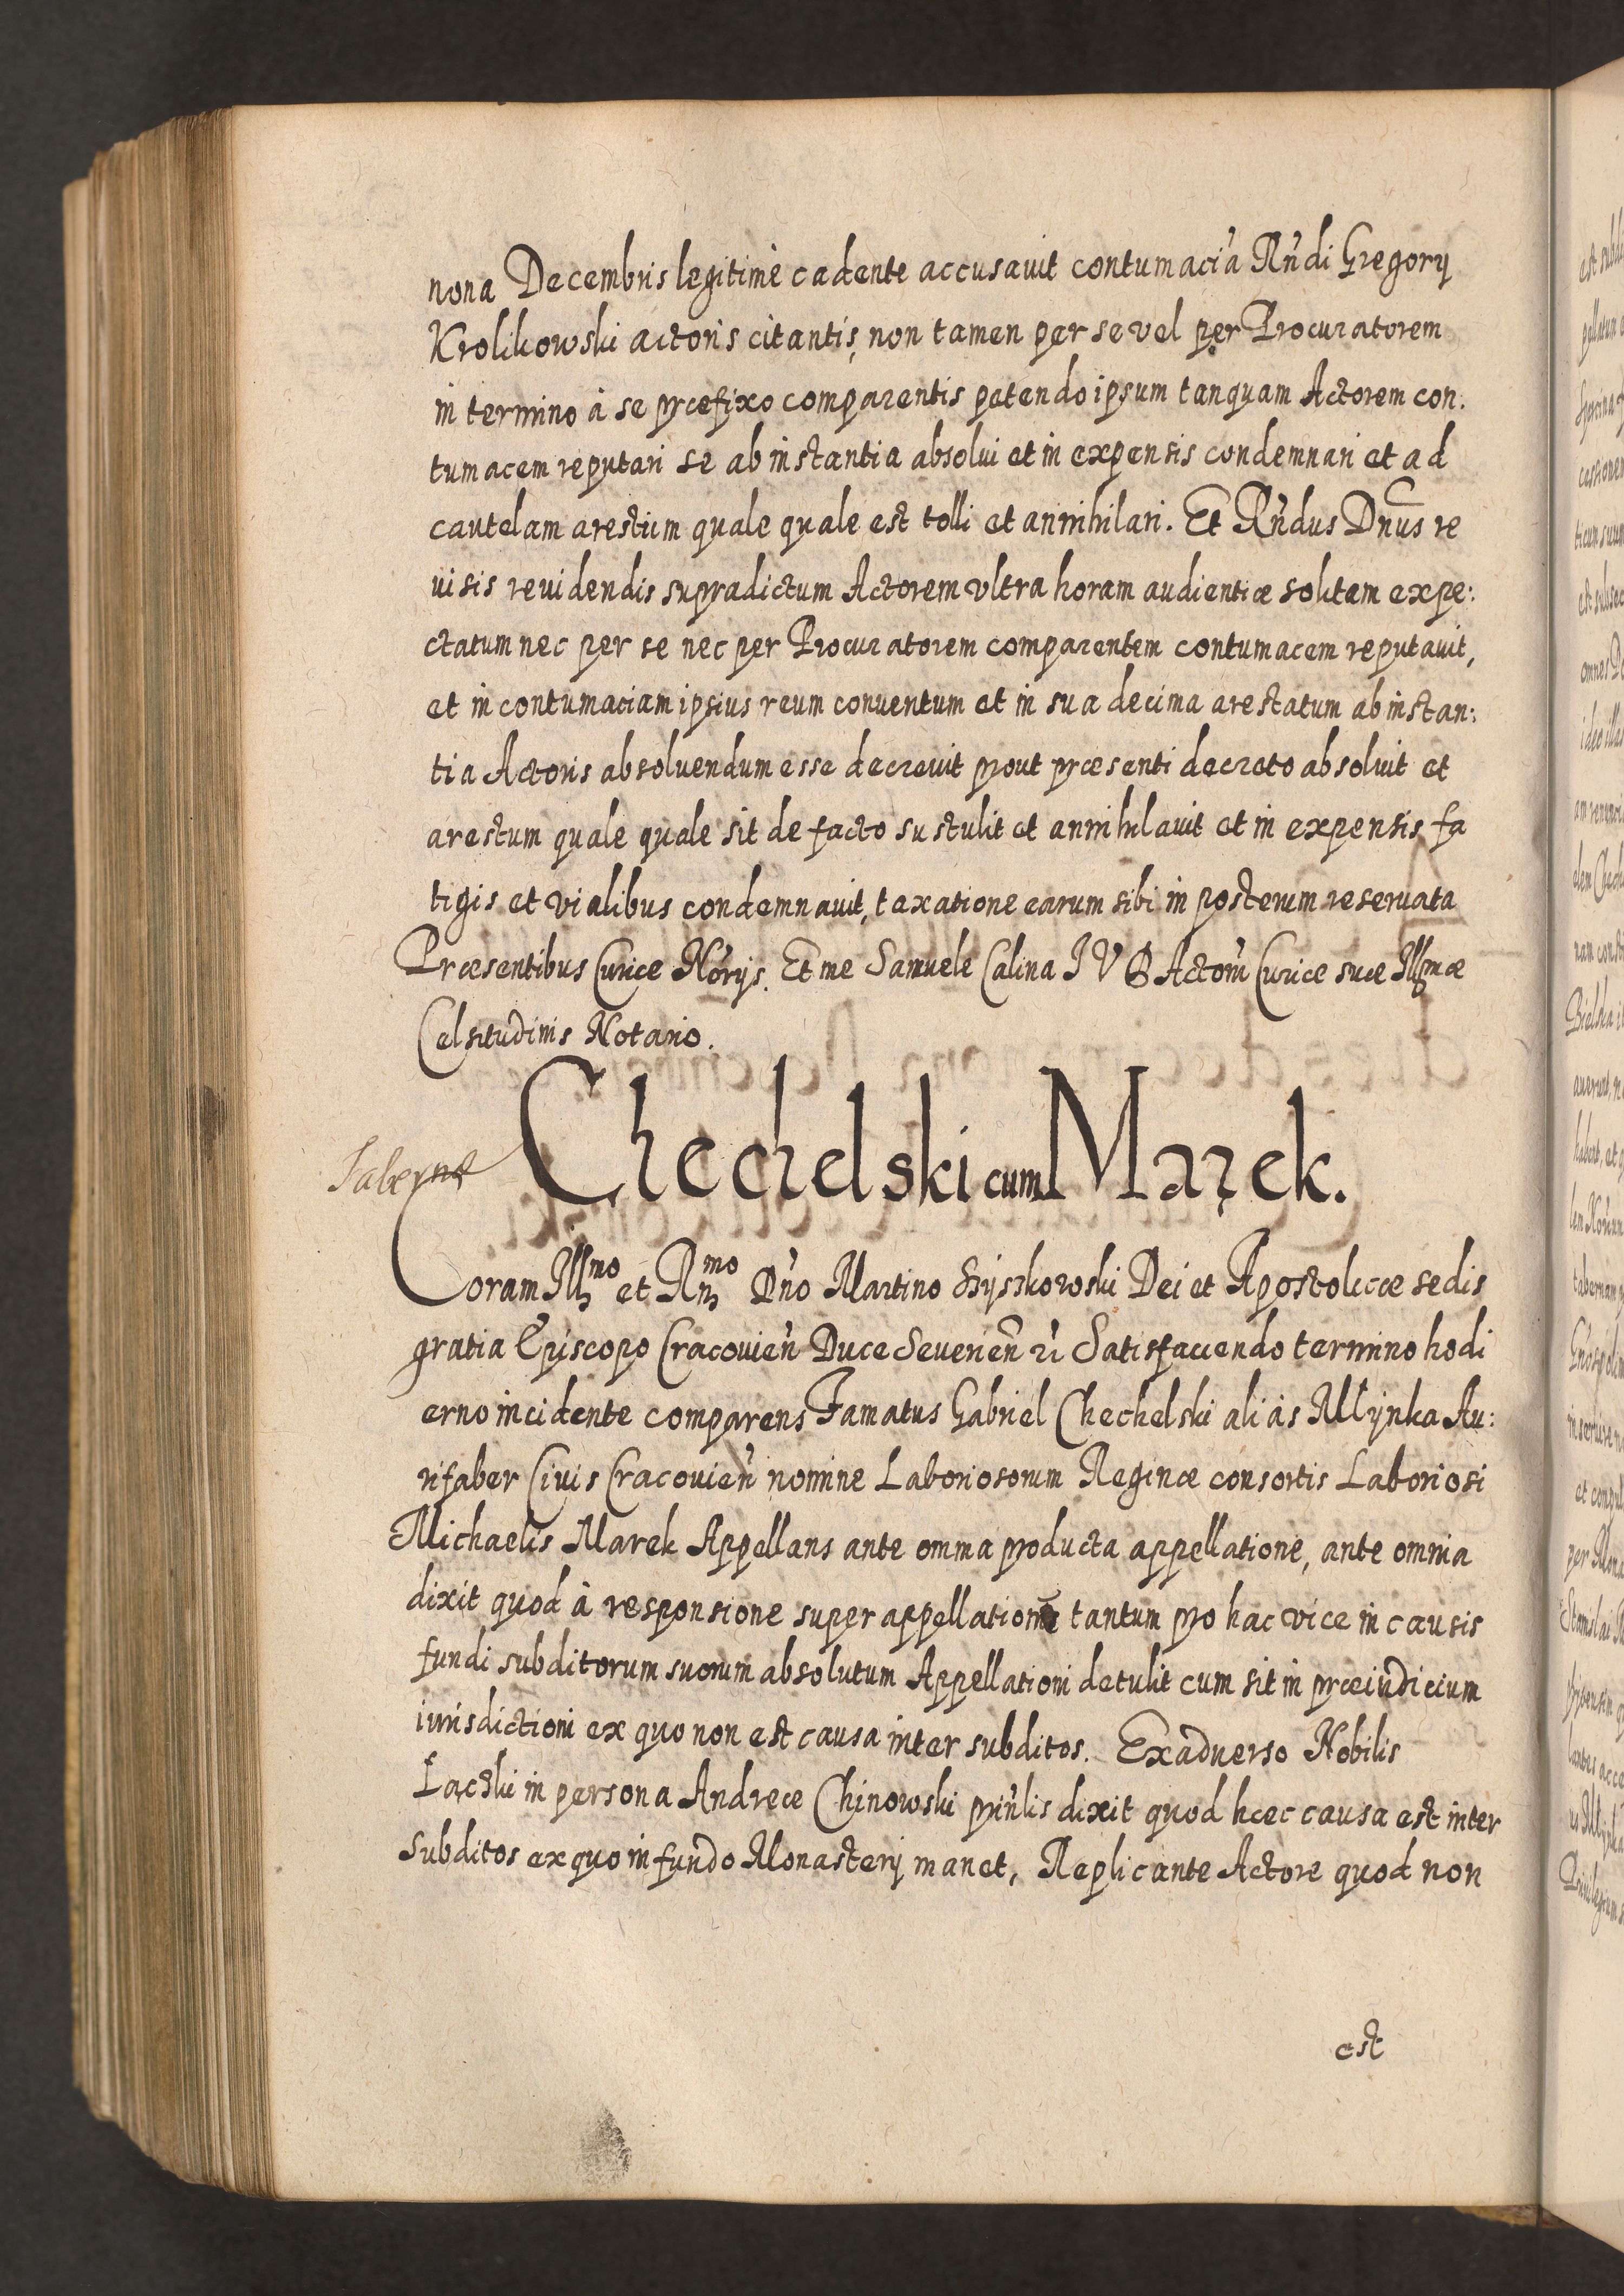 nona Decembris legitimè cadente accusavit contumaciã Rñdi Gregorÿ
Krolikowski actoris citantis, non tamen per se vel per Procuratorem
in termino à se præfixo comparentis petendo ipsum tanquam Actorem con.
tumacem reputari se ab instantia absolui et in expensis condemnari et ad
cautelam arestum quale quale est tolli et annihilari. Et Rñdus Dñus re
uisis reuidendis supradictum Actorem vltra horam audientiæ solitam expe:
ctatum nec per se nec per Procuratorem comparentem contumacem reputauit,
et in contumaciam ipsius reum conuentum et in sua decima arestatum ab instan:
tia Actoris absoluendum esse decreuit prout præsenti decreto absoluit et
arestum quale quale sit de facto sustulit et annihilauit et in expensis fa
tigis et vialibus condemnauit, taxatione earum sibi in posterum reseruata
Præsentibus Curiæ Nõrijs. Et me Samuele Calina I V D Actorũ Curiæ suæ Illmæ
Celsitudinis Notario.
Tabernæ
Chechelski cum Marek.
Coram Illmo et Rmo Dño Martino Szyszkowski Dei et Apostolicæ sedis
gratia Episcopo Cracouieñ Duce Seuerieñ Satisfaciendo termino hodi
erno incidente comparens Famatus Gabriel Chechelski aliàs Młynka Au:
rifaber Ciuis Cracouieñ nomine Laboriosorum Reginæ consortis Laboriosi
Michaelis Marek Appellans ante omnia producta appellatione, ante omnia
dixit quod à responsione super appellatione tantum pro hac vice in causis
fundi subditorum suorum absolutum Appellationi detulit cum sit in præiudicium
iurisdictioni ex quo non est causa inter subditos. Ex aduerso Nobilis
Łączki in persona Andreæ Chinowski priñlis dixit quod hæc causa est inter
Subditos ex quo in fundo Monasterij manet, Replicante Actore quod non
est